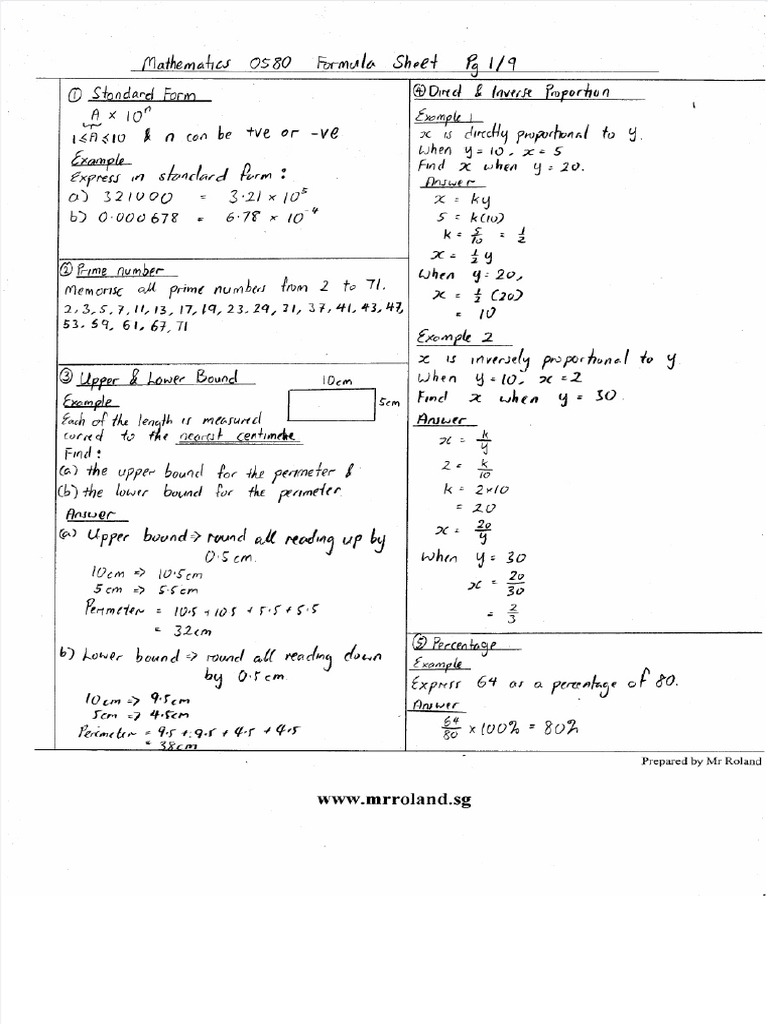 Mathematics 0580 Formula Sheet Pg 1/9
① Standard Form
A × 10ⁿ
1 ≤ A ≤ 10 & n can be +ve or -ve
Example
Express in standard form :
a) 321000 = 3.21 × 10⁵
b) 0.000678 = 6.78 × 10⁻⁴
② Prime number
Memorise all prime numbers from 2 to 71.
2, 3, 5, 7, 11, 13, 17, 19, 23, 29, 31, 37, 41, 43, 47,
53, 59, 61, 67, 71
③ Upper & Lower Bound
10cm
5cm
Example
Each of the length is measured
correct to the nearest centimetre
Find :
(a) the upper bound for the perimeter &
(b) the lower bound for the perimeter.
Answer
(a) Upper bound => round all reading up by
0.5 cm.
10cm => 10.5cm
5cm => 5.5cm
Perimeter = 10.5 + 10.5 + 5.5 + 5.5
= 32cm
b) Lower bound => round all reading down
by 0.5cm.
10cm => 9.5cm
5cm => 4.5cm
Perimeter = 9.5 + 9.5 + 4.5 + 4.5
= 38cm
④ Direct & Inverse Proportion
Example 1
x is directly proportional to y.
When y = 10, x = 5
Find x when y = 20.
Answer
x = ky
5 = k(10)
k = 5/10 = 1/2
x = 1/2 y
When y = 20,
x = 1/2 (20)
= 10
Example 2
x is inversely proportional to y.
When y = 10, x = 2
Find x when y = 30.
Answer
x = k/y
2 = k/10
k = 2×10
= 20
x = 20/y
When y = 30
x = 20/30
= 2/3
⑤ Percentage
Example
Express 64 as a percentage of 80.
Answer
64/80 × 100% = 80%
Prepared by Mr Roland
www.mrroland.sg